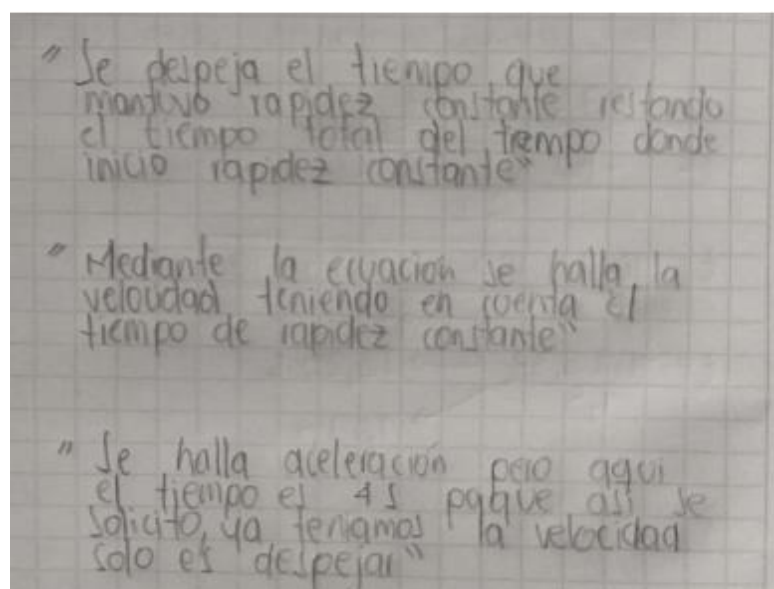 " Se despeja el tiempo que
mantuvo rapidez constante restando
el tiempo total del tiempo donde
inicio rapidez constante"
" Mediante la ecuación se halla la
velocidad teniendo en cuenta el
tiempo de rapidez constante"
" Se halla aceleración pero aqui
el tiempo es 4s porque asi se
solicito, ya teniamos la velocidad
solo es despejar"